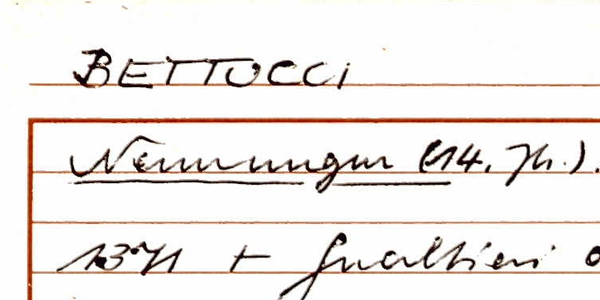 BETTOCCI
Nennungen (14. Jh.).
1371 + Gualtieri